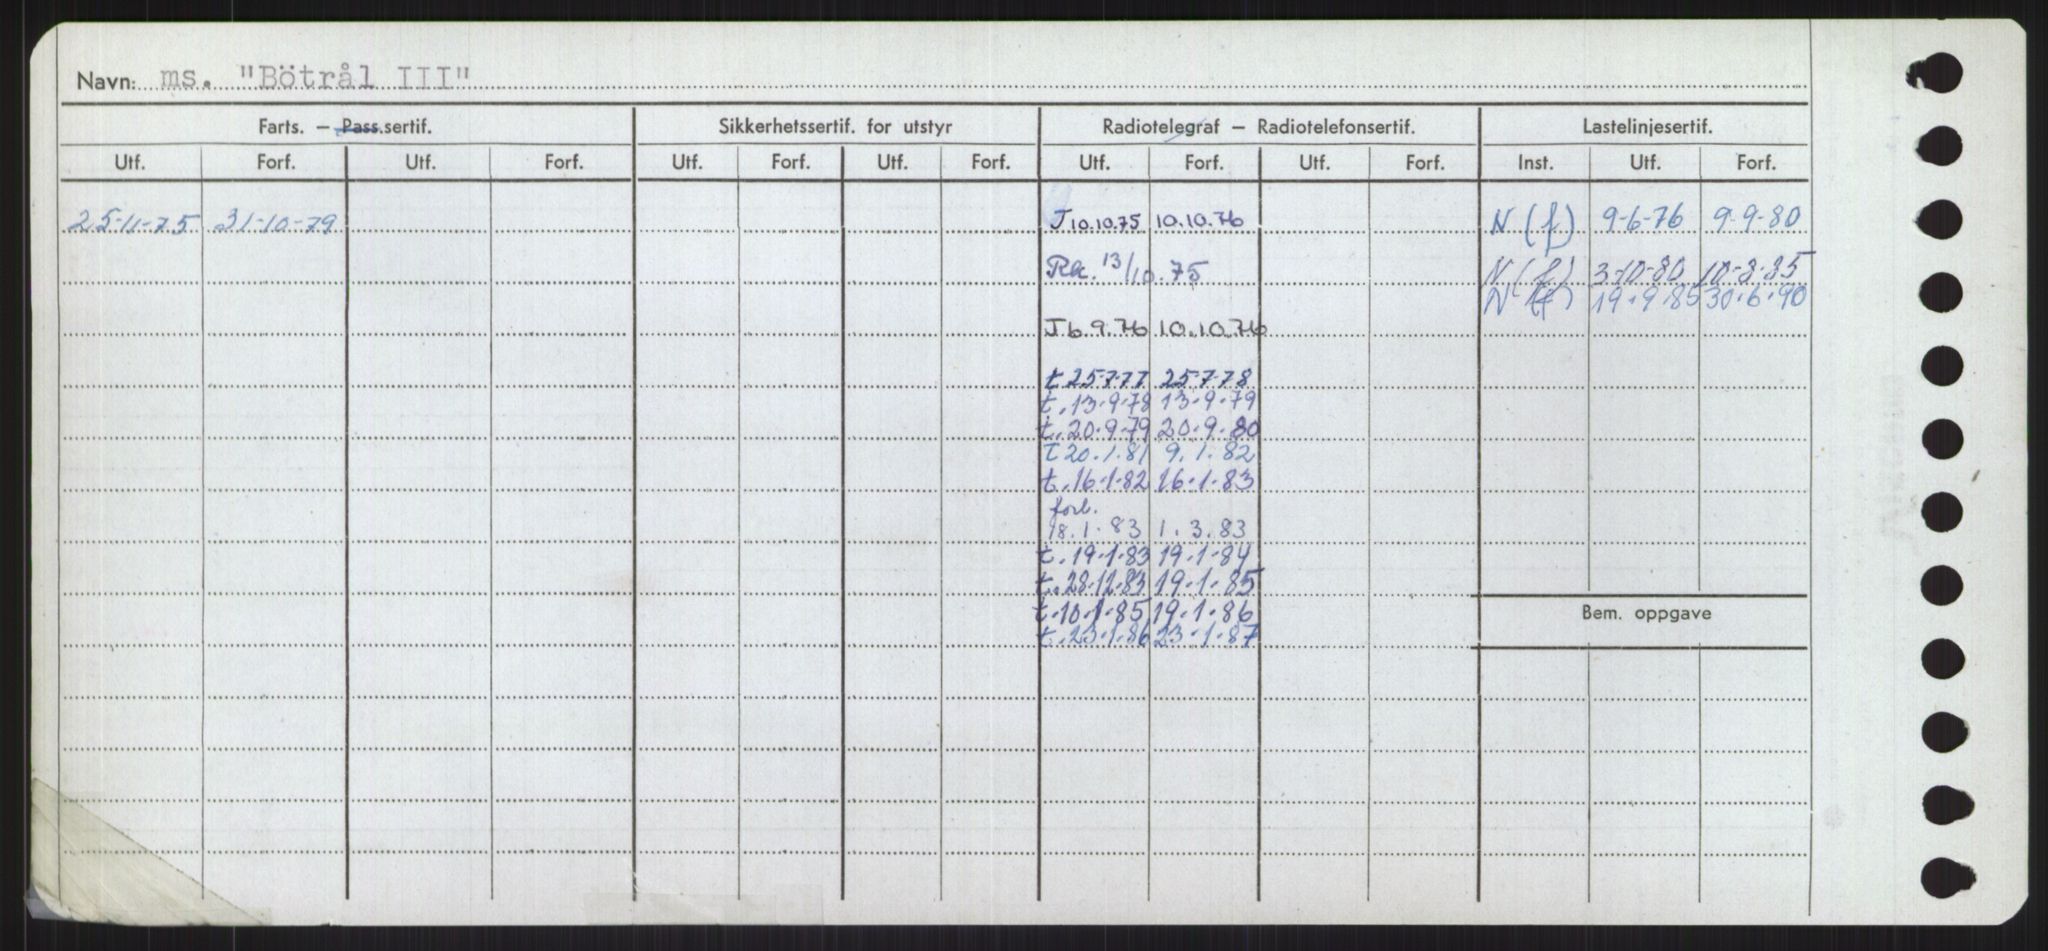 Navn: ms. "Bötrål III"
Farts. – Pass.sertif. Sikkerhetssertif. for utstyr Radiotelegraf – Radiotelefonsertif. Lastelinjesertif.
Utf. Forf. Utf. Forf. Utf. Forf. Utf. Forf. Utf. Forf. Utf. Forf. Inst. Utf. Forf.
25-11-75 31-10-79 J 10.10.75 10.10.76 N (f) 9-6-76 9-9-80
Rk. 13/10.75 N (f) 3-10-80 10-8-85
N (f) 19.9.85 30.6.90
J 6.9.76 10.10.76
t 25-7-77 25-7-78
t. 13-9-78 13-9-79
t. 20-9-79 20-9-80
t 20.1.81 9.1.82
t. 16-1-82 16-1-83
forl.
18.1.83 1.3.83
t. 19-1-83 19-1-84
t. 28-12-83 19-1-85
t. 10-1-85 19-1-86
t. 23-1-86 23-1-87
Bem. oppgave